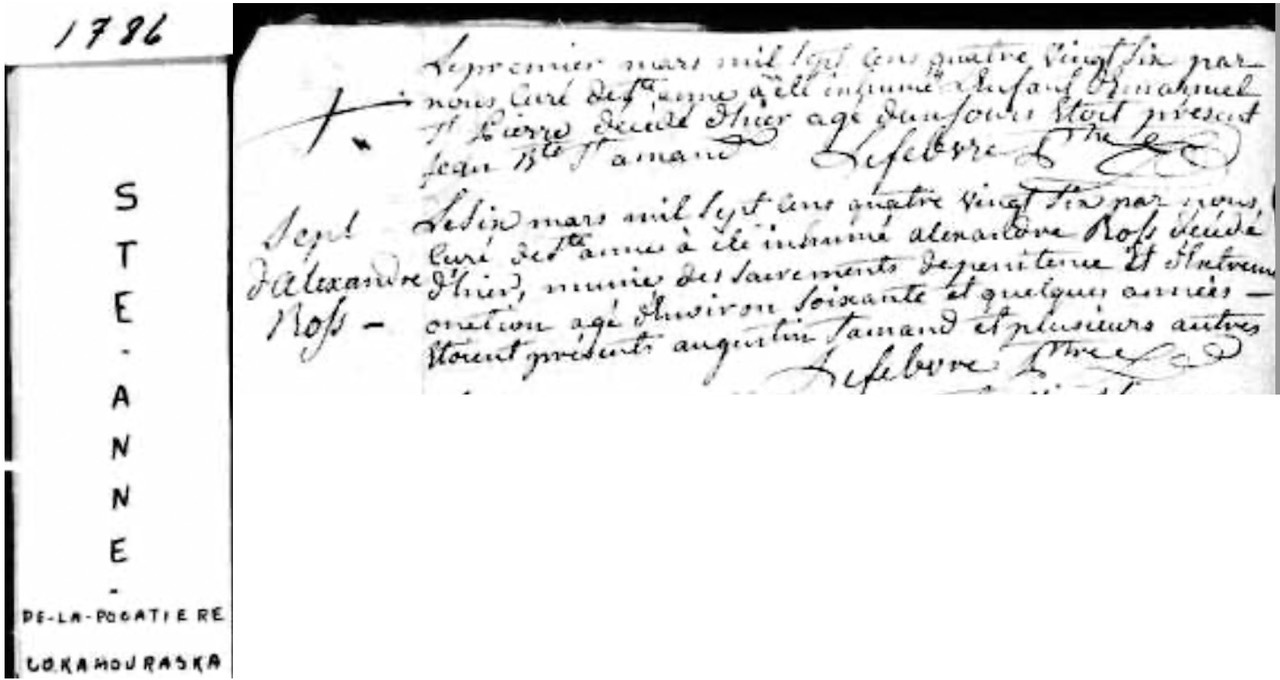 1786
STE-ANNE-
DE-LA-POCATIERE
CO. KAMOURASKA
Le premier mars mil sept cens quatre vingt six par
nous curé de Ste anne à été inhumé L'enfant D'Emanuel
St Pierre décédé d'hier agé d'un jours Etoit présent
jean Bte St amand Lefebvre Ptre
Sept
d'Alexandre
Ross -
Le six mars mil sept cens quatre vingt six par nous
Curé de Ste anne à été inhumé alexandre Ross décédé
d'hier, munie des sacrements de penitence Et d'Extreme
onction agé d'Environ soixante et quelques années -
Etoient présents augustin St amand et plusieurs autres
Lefebvre Ptre